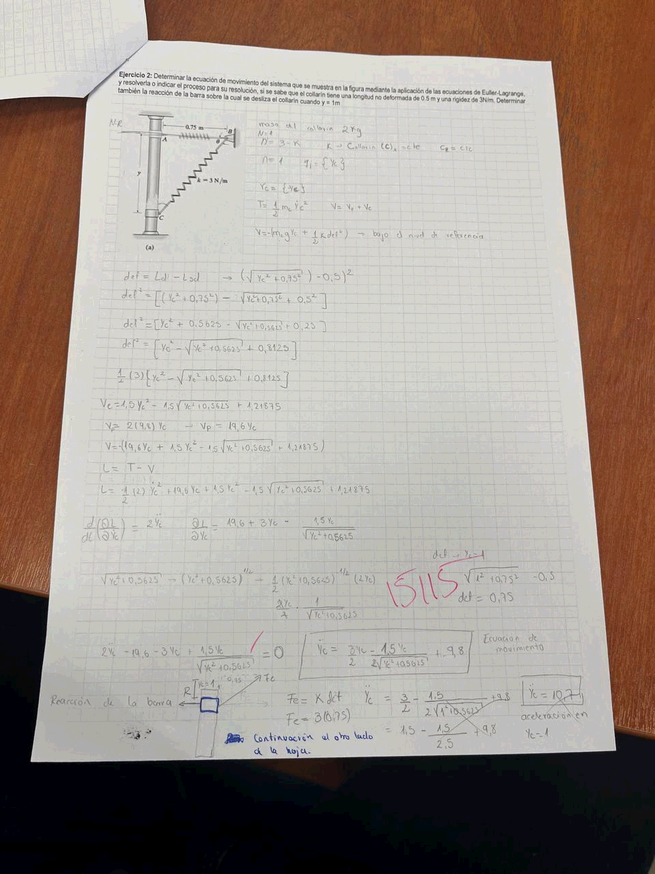 Ejercicio 2: Determinar la ecuación de movimiento del sistema que se muestra en la figura mediante la aplicación de las ecuaciones de Euler-Lagrange,
y resolverla o indicar el proceso para su resolución, si se sabe que el collarín tiene una longitud no deformada de 0.5 m y una rigidez de 3N/m. Determinar
también la reacción de la barra sobre la cual se desliza el collarín cuando y = 1m
N.R
0.75 m
A
B
y
k = 3 N/m
C
(a)
masa del collarin 2kg
N=1
n=1 qi = {Yc}
rc = {Yc}
T = 1/2 mc Ẏc²
V = -(mc g Yc + 1/2 K def²) → bajo el nivel de referencia
def = Ld - Lsd → (√(Yc² + 0,75²) - 0,5)²
def² = [(Yc² + 0,75²) - √(Yc² + 0,75²) + 0,5²]
def² = [Yc² + 0.5625 - √(Yc² + 0,5625) + 0,25]
def² = [Yc² - √(Yc² + 0,5625) + 0,8125]
1/2 (3) [Yc² - √(Yc² + 0,5625) + 0,8125]
Ve = 1,5 Yc² - 1,5 √(Yc² + 0,5625) + 1,21875
Vp = 2(9,8) Yc → Vp = 19,6 Yc
V = -(19,6 Yc + 1,5 Yc² - 1,5 √(Yc² + 0,5625) + 1,21875)
L = T - V
L = 1/2 (2) Ẏc² + 19,6 Yc + 1,5 Yc² - 1,5 √(Yc² + 0,5625) + 1,21875
d/dt (∂L/∂Ẏc) = 2Ÿc ∂L/∂Yc = 19,6 + 3Yc - 1,5 Yc / √(Yc² + 0,5625)
def → Yc = 1
√(Yc² + 0,5625) → (Yc² + 0,5625)^1/2 → 1/2 (Yc² + 0,5625)^-1/2 (2Yc)
15/15
√(1² + 0,75²) - 0,5
def = 0,75
2Ÿc - 19,6 - 3Yc + 1,5 Yc / √(Yc² + 0,5625) = 0
Ÿc = 3Yc/2 - 1,5 Yc / 2√(Yc² + 0,5625) + 9,8
Ecuacion de movimiento
Reacción de la barra
R
Yc = 1
0,75
Fe
Fe = K def
Fe = 3(0,75)
Ÿc = 3/2 - 1,5 / 2√(1² + 0,5625) + 9,8
= 1,5 - 1,5/2,5 + 9,8
Ÿc = 10,7
aceleración en
Yc = 1
Continuación al otro lado
d la hoja.